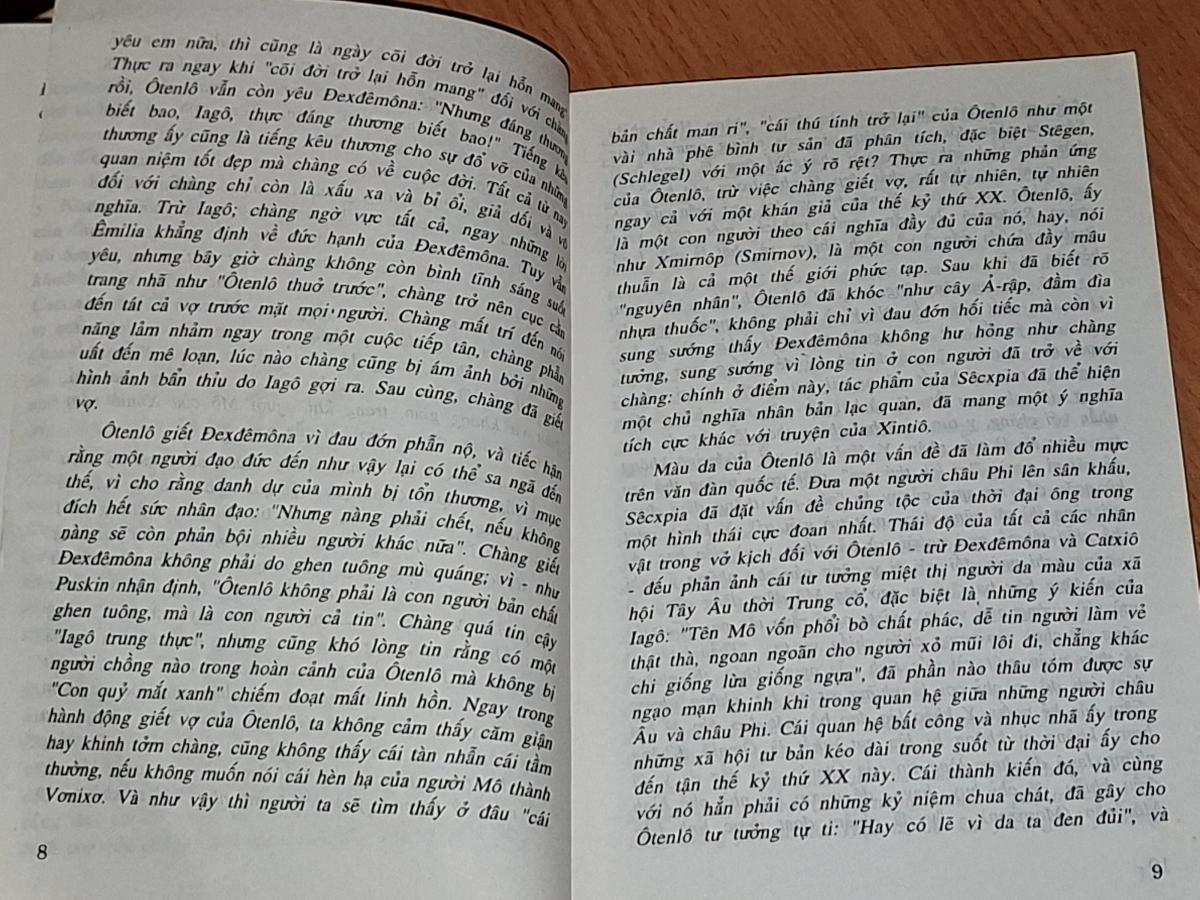 yêu em nữa, thì cũng là ngày cõi đời trở lại hỗn mang"
Thực ra ngay khi "cõi đời trở lại hỗn mang" đối với chàng
rồi, Ôtenlô vẫn còn yêu Đexđêmôna: "Nhưng đáng thương
biết bao, Iagô, thực đáng thương biết bao!" Tiếng kêu
thương ấy cũng là tiếng kêu thương cho sự đổ vỡ của những
quan niệm tốt đẹp mà chàng có về cuộc đời. Tất cả từ nay
đối với chàng chỉ còn là xấu xa và bỉ ổi, giả dối và vô
nghĩa. Trừ Iagô; chàng ngờ vực tất cả, ngay những lời
Êmilia khẳng định về đức hạnh của Đexđêmôna. Tuy vẫn
yêu, nhưng bây giờ chàng không còn bình tĩnh sáng suốt
trang nhã như "Ôtenlô thuở trước", chàng trở nên cục cằn
đến tát cả vợ trước mặt mọi người. Chàng mất trí đến nỗi
năng lảm nhảm ngay trong một cuộc tiếp tân, chàng phẫn
uất đến mê loạn, lúc nào chàng cũng bị ám ảnh bởi những
hình ảnh bẩn thỉu do Iagô gợi ra. Sau cùng, chàng đã giết
vợ.
Ôtenlô giết Đexđêmôna vì đau đớn phẫn nộ, và tiếc hận
rằng một người đạo đức đến như vậy lại có thể sa ngã đến
thế, vì cho rằng danh dự của mình bị tổn thương, vì mục
đích hết sức nhân đạo: "Nhưng nàng phải chết, nếu không
nàng sẽ còn phản bội nhiều người khác nữa". Chàng giết
Đexđêmôna không phải do ghen tuông mù quáng; vì - như
Puskin nhận định, "Ôtenlô không phải là con người bản chất
ghen tuông, mà là con người cả tin". Chàng quá tin cậy
"Iagô trung thực", nhưng cũng khó lòng tin rằng có một
người chồng nào trong hoàn cảnh của Ôtenlô mà không bị
"Con quỷ mắt xanh" chiếm đoạt mất linh hồn. Ngay trong
hành động giết vợ của Ôtenlô, ta không cảm thấy căm giận
hay khinh tởm chàng, cũng không thấy cái tàn nhẫn cái tầm
thường, nếu không muốn nói cái hèn hạ của người Mô thành
Vơnixơ. Và như vậy thì người ta sẽ tìm thấy ở đâu "cái
8
bản chất man rỉ", "cái thú tính trở lại" của Ôtenlô như một
vài nhà phê bình tư sản đã phân tích, đặc biệt Stêgen,
(Schlegel) với một ác ý rõ rệt? Thực ra những phản ứng
của Ôtenlô, trừ việc chàng giết vợ, rất tự nhiên, tự nhiên
ngay cả với một khán giả của thế kỷ thứ XX. Ôtenlô, ấy
là một con người theo cái nghĩa đầy đủ của nó, hay, nói
như Xmirnôp (Smirnov), là một con người chứa đầy mâu
thuẫn là cả một thế giới phức tạp. Sau khi đã biết rõ
"nguyên nhân", Ôtenlô đã khóc "như cây Ả-rập, đầm đìa
nhựa thuốc", không phải chỉ vì đau đớn hối tiếc mà còn vì
sung sướng thấy Đexđêmôna không hư hỏng như chàng
tưởng, sung sướng vì lòng tin ở con người đã trở về với
chàng: chính ở điểm này, tác phẩm của Sêcxpia đã thể hiện
một chủ nghĩa nhân bản lạc quan, đã mang một ý nghĩa
tích cực khác với truyện của Xintiô.
Màu da của Ôtenlô là một vấn đề đã làm đổ nhiều mực
trên văn đàn quốc tế. Đưa một người châu Phi lên sân khấu,
Sêcxpia đã đặt vấn đề chủng tộc của thời đại ông trong
một hình thái cực đoan nhất. Thái độ của tất cả các nhân
vật trong vở kịch đối với Ôtenlô - trừ Đexđêmôna và Catxiô
- đếu phản ảnh cái tư tưởng miệt thị người da màu của xã
hội Tây Âu thời Trung cổ, đặc biệt là những ý kiến của
Iagô: "Tên Mô vốn phổi bò chất phác, dễ tin người làm vẻ
thật thà, ngoan ngoãn cho người xỏ mũi lôi đi, chẳng khác
chi giống lừa giống ngựa", đã phần nào thâu tóm được sự
ngạo mạn khinh khi trong quan hệ giữa những người châu
Âu và châu Phi. Cái quan hệ bất công và nhục nhã ấy trong
những xã hội tư bản kéo dài trong suốt từ thời đại ấy cho
đến tận thế kỷ thứ XX này. Cái thành kiến đó, và cùng
với nó hẳn phải có những kỷ niệm chua chát, đã gây cho
Ôtenlô tư tưởng tự ti: "Hay có lẽ vì da ta đen đủi", và
9